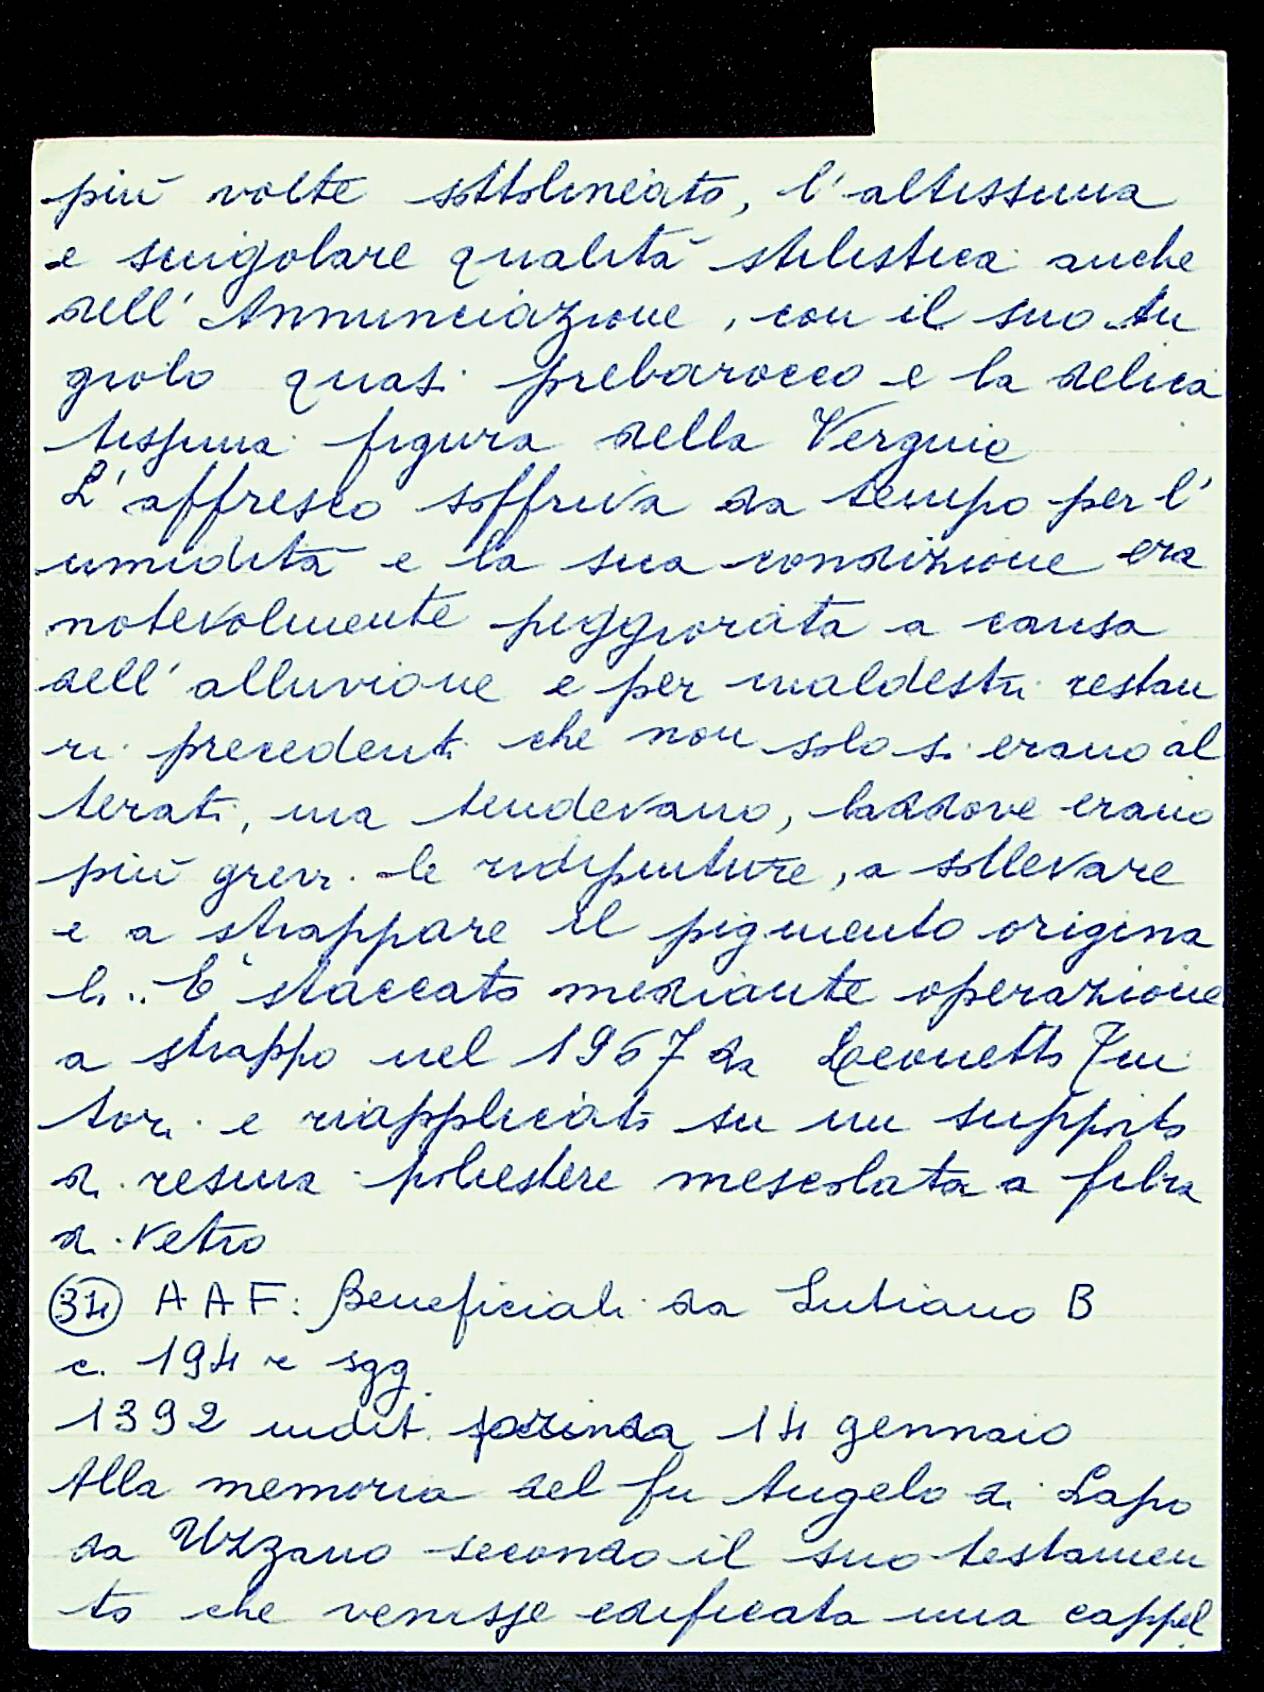 più volte sottolineato, l'altissima
e singolare qualità stilistica anche
dell'Annunciazione, con il suo An
giolo quasi prebarocco e la delica
tissima figura della Vergine
L'affresco soffriva da tempo per l'
umidità e la sua condizione era
notevolmente peggiorata a causa
dell'alluvione e per maldestri restau
ri precedenti che non solo si erano al
terati, ma tendevano, laddove erano
più grevi le ridipinture, a sollevare
e a strappare il pigmento origina
le.. È staccato mediante operazione
a strappo nel 1967 da Leonetto Tin
tori e riapplicato su un supporto
di resina poliestere mescolata a fibra
di vetro
(34) AAF: Beneficiali da Lutiano B
c. 194 r sgg.
1392 indit. 14 gennaio
Alla memoria del fu Angelo di Lapo
da Uzzano secondo il suo testamen
to che venisse edificata una cappel